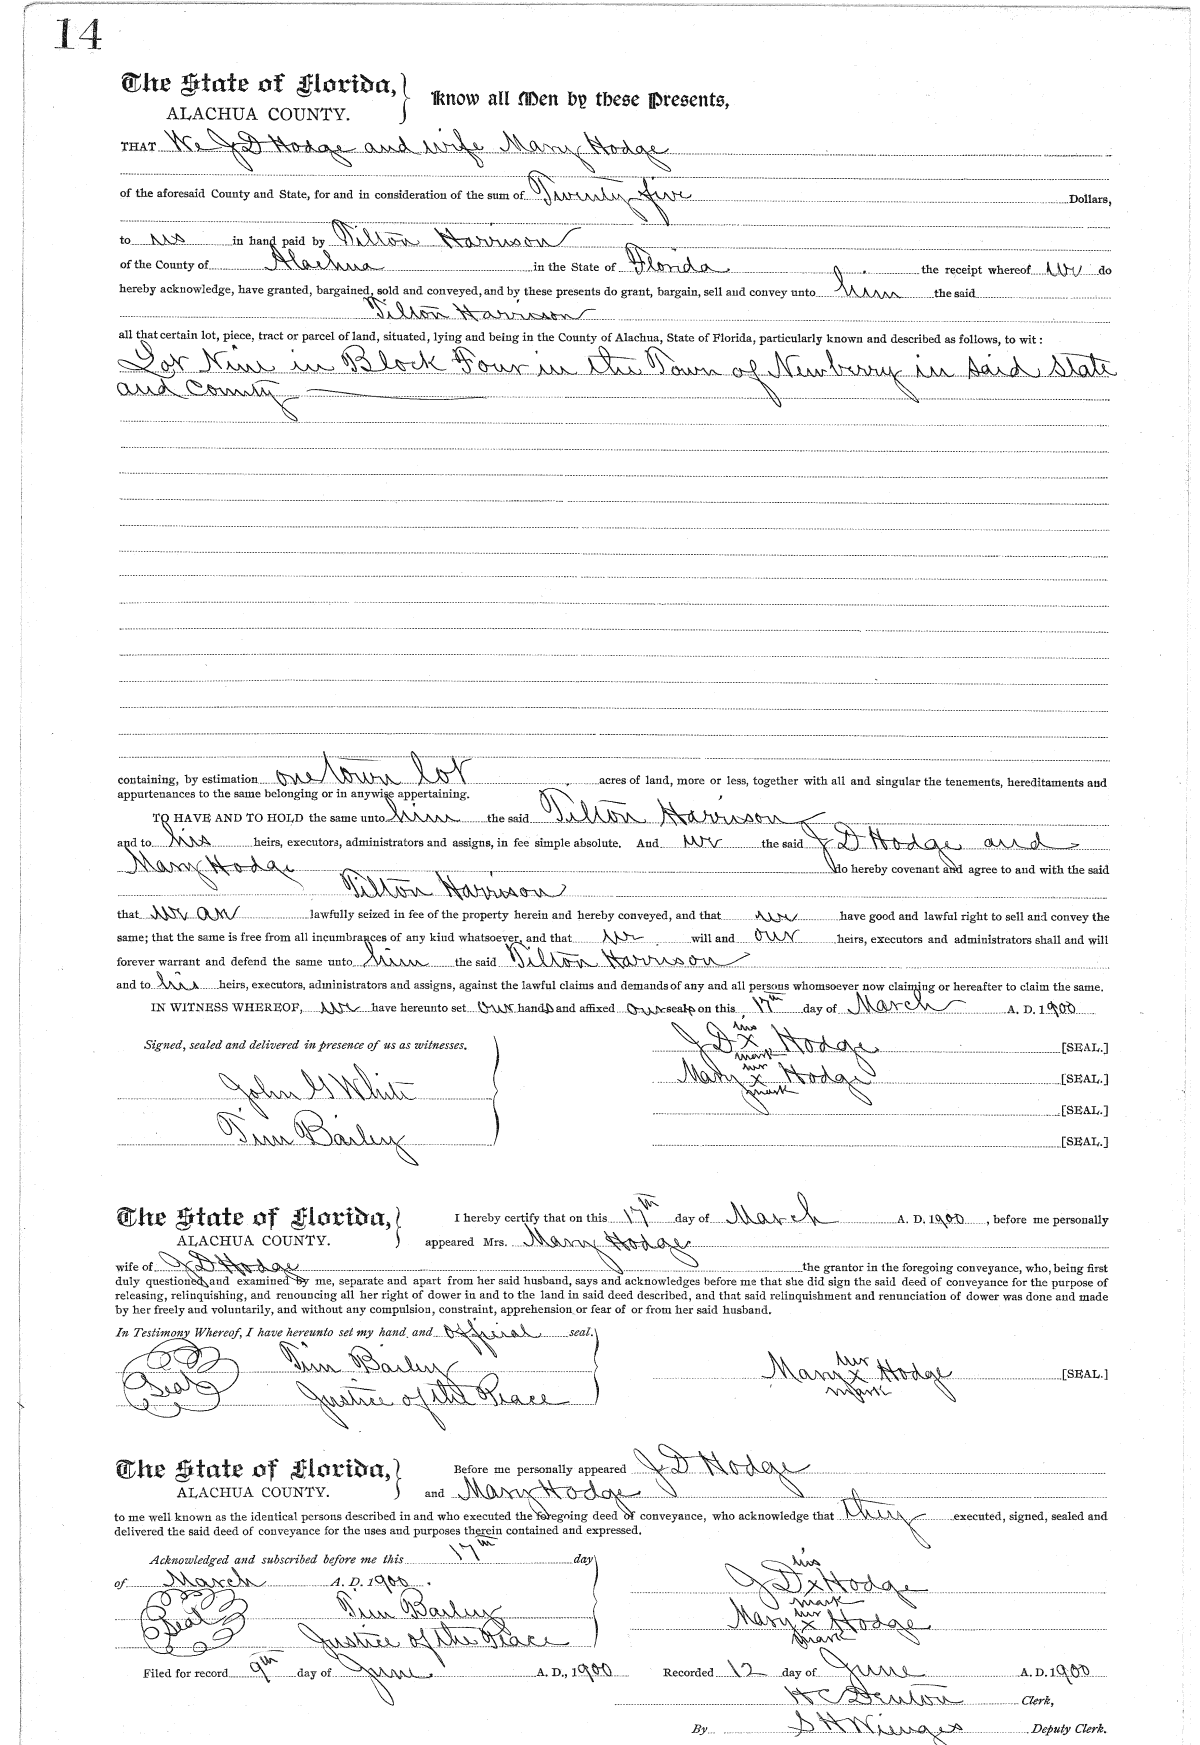 14
The State of Florida,
ALACHUA COUNTY.
Know all Men by these Presents,
THAT We J D Hodge and wife Mary Hodge
of the aforesaid County and State, for and in consideration of the sum of Twenty five Dollars,
to us in hand paid by Tilton Harrison
of the County of Alachua in the State of Florida the receipt whereof we do
hereby acknowledge, have granted, bargained, sold and conveyed, and by these presents do grant, bargain, sell and convey unto him the said
Tilton Harrison
all that certain lot, piece, tract or parcel of land, situated, lying and being in the County of Alachua, State of Florida, particularly known and described as follows, to wit:
Lot Nine in Block Four in the Town of Newberry in said State
and County
containing, by estimation one town lot acres of land, more or less, together with all and singular the tenements, hereditaments and
appurtenances to the same belonging or in anywise appertaining.
TO HAVE AND TO HOLD the same unto him the said Tilton Harrison
and to his heirs, executors, administrators and assigns, in fee simple absolute. And we the said J D Hodge and
Mary Hodge do hereby covenant and agree to and with the said
Tilton Harrison
that we are lawfully seized in fee of the property herein and hereby conveyed, and that we have good and lawful right to sell and convey the
same; that the same is free from all incumbrances of any kind whatsoever, and that we will and our heirs, executors and administrators shall and will
forever warrant and defend the same unto him the said Tilton Harrison
and to his heirs, executors, administrators and assigns, against the lawful claims and demands of any and all persons whomsoever now claiming or hereafter to claim the same.
IN WITNESS WHEREOF, we have hereunto set our hands and affixed our seals on this 17th day of March A. D. 1900
Signed, sealed and delivered in presence of us as witnesses.
John G White
Tim Bailey
his
J D x Hodge [SEAL.]
mark
her
Mary x Hodge [SEAL.]
mark
[SEAL.]
[SEAL.]
The State of Florida,
ALACHUA COUNTY.
I hereby certify that on this 17th day of March A. D. 1900, before me personally
appeared Mrs. Mary Hodge
wife of J D Hodge the grantor in the foregoing conveyance, who, being first
duly questioned and examined by me, separate and apart from her said husband, says and acknowledges before me that she did sign the said deed of conveyance for the purpose of
releasing, relinquishing, and renouncing all her right of dower in and to the land in said deed described, and that said relinquishment and renunciation of dower was done and made
by her freely and voluntarily, and without any compulsion, constraint, apprehension or fear of or from her said husband.
In Testimony Whereof, I have hereunto set my hand and official seal.
Tim Bailey
Seal
Justice of the Peace
her
Mary x Hodge [SEAL.]
mark
The State of Florida,
ALACHUA COUNTY.
Before me personally appeared J D Hodge
and Mary Hodge
to me well known as the identical persons described in and who executed the foregoing deed of conveyance, who acknowledge that they executed, signed, sealed and
delivered the said deed of conveyance for the uses and purposes therein contained and expressed.
Acknowledged and subscribed before me this 17th day
of March A. D. 1900.
Tim Bailey
Seal
Justice of the Peace
his
J D x Hodge
mark
her
Mary x Hodge
mark
Filed for record 9th day of June A. D., 1900 Recorded 12 day of June A. D. 1900
H C Denton Clerk,
By S H Wienges Deputy Clerk.